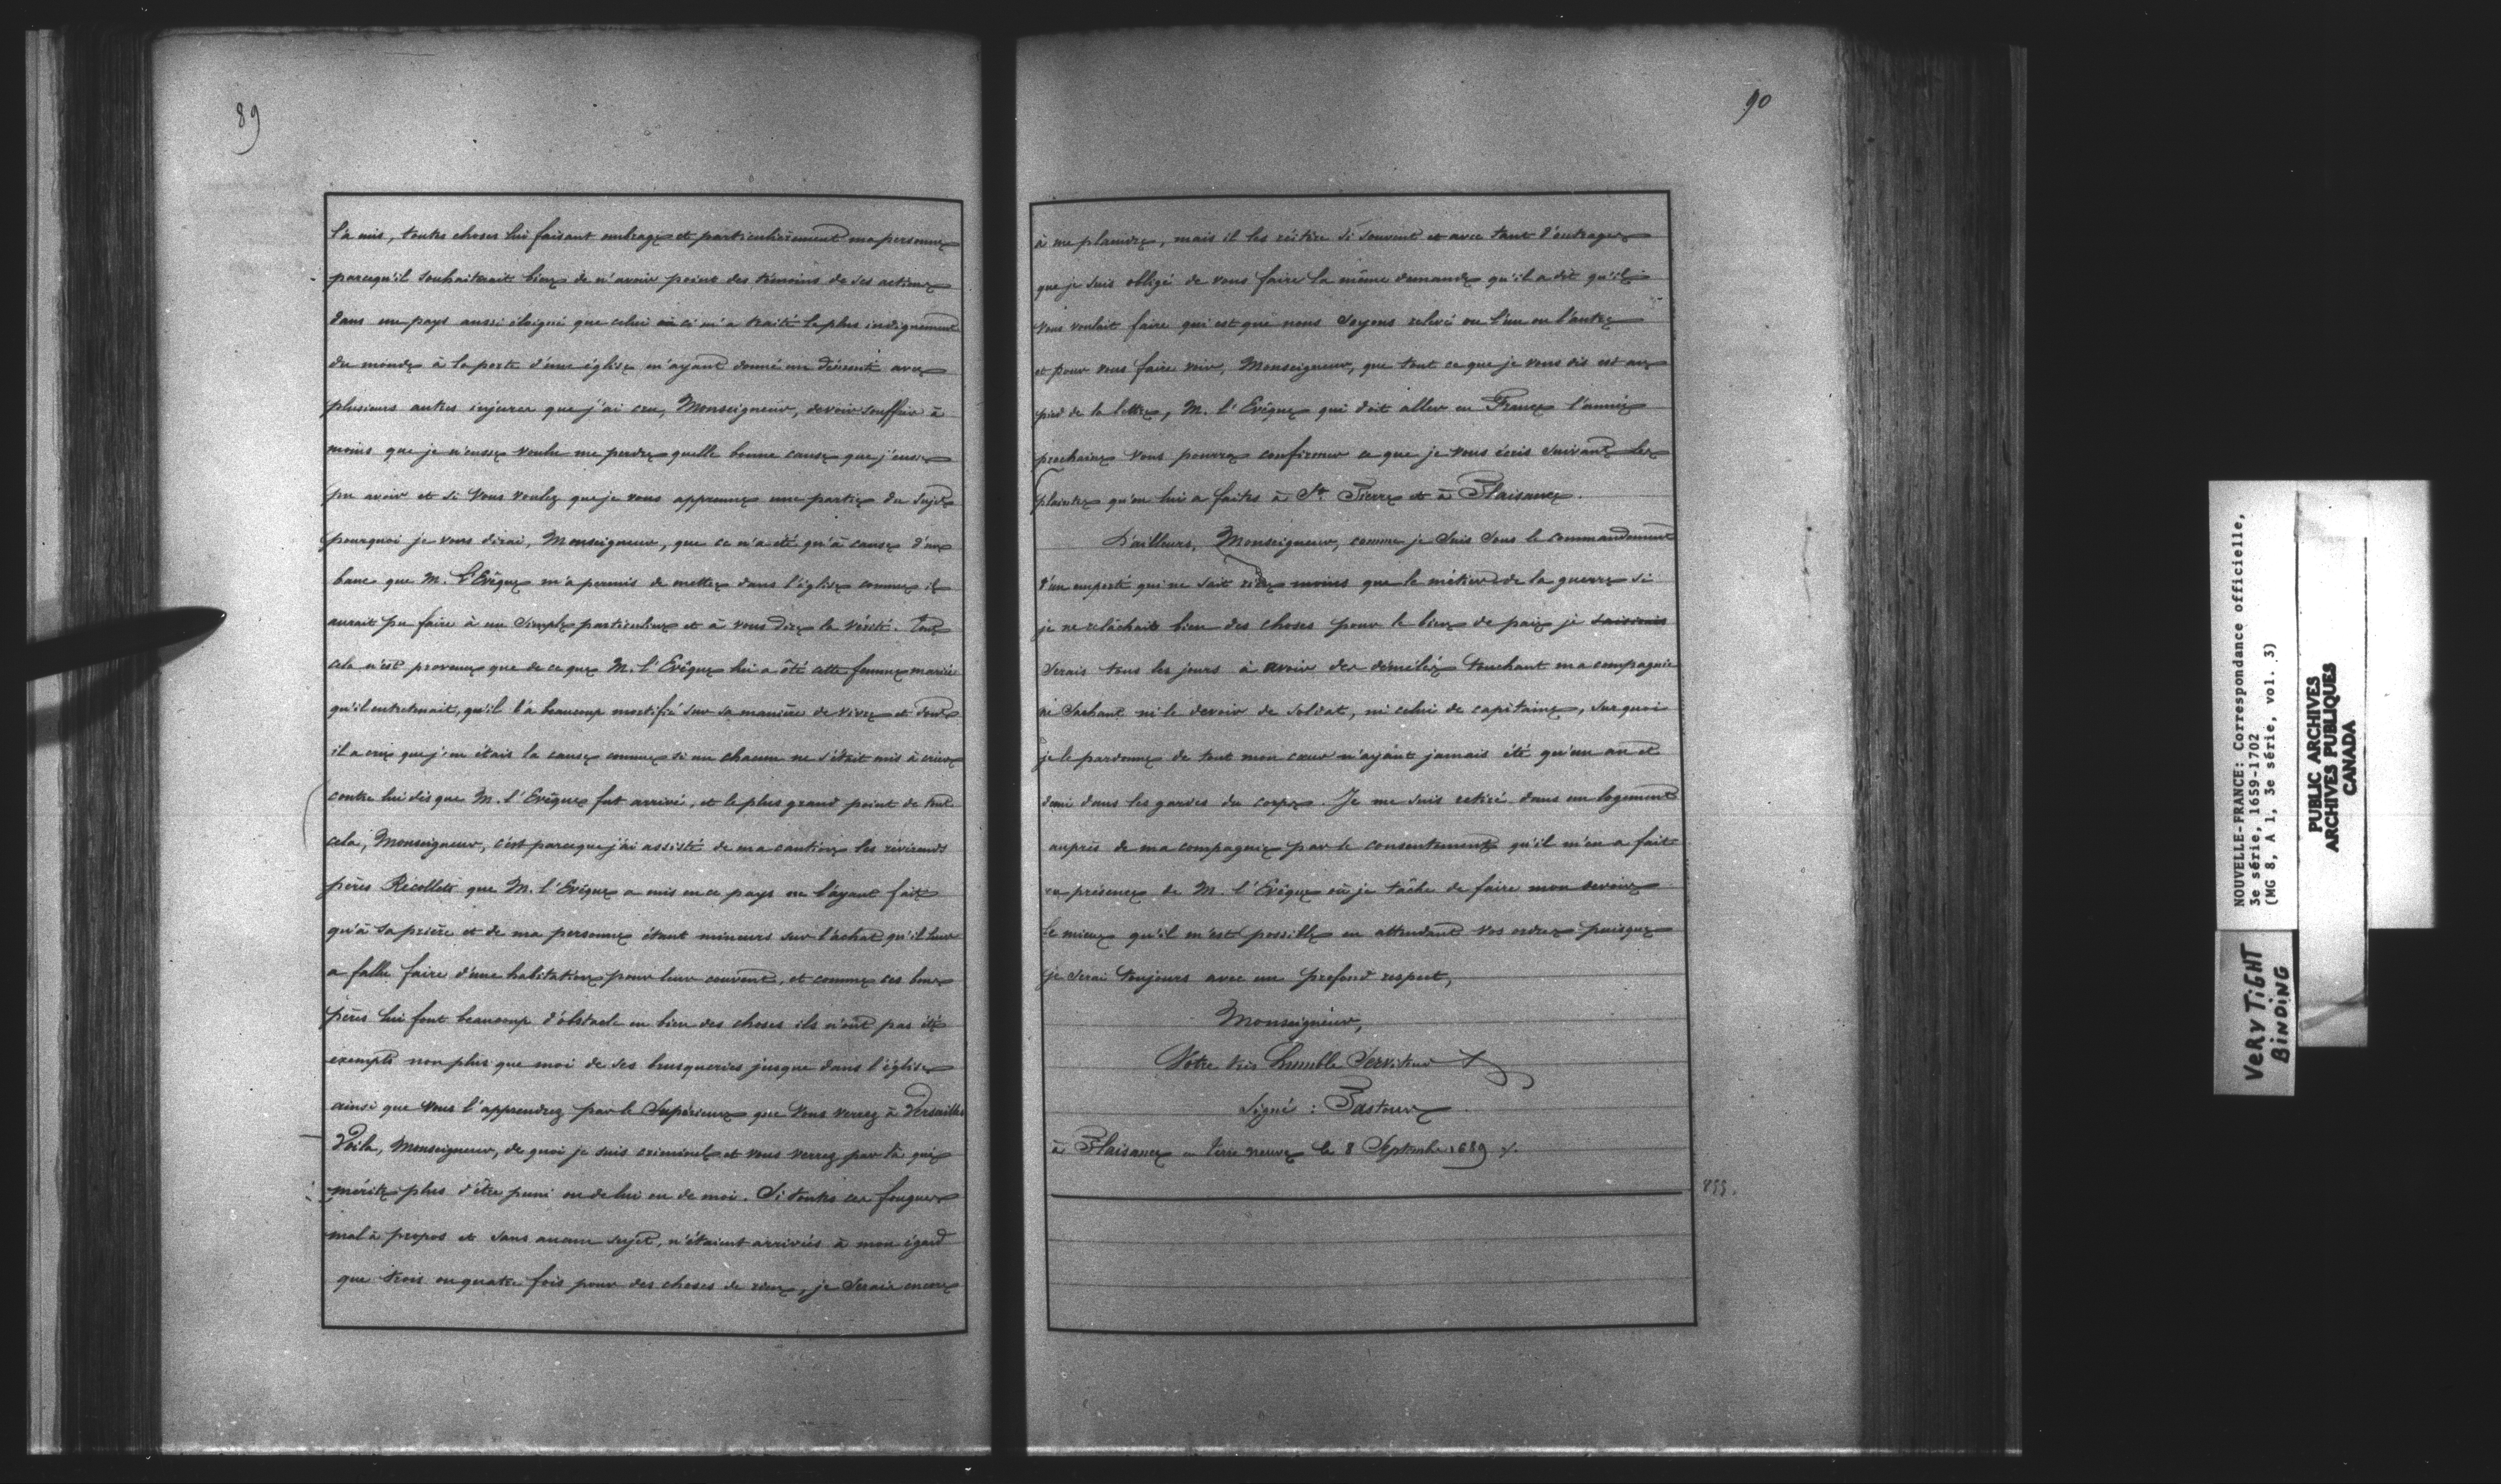 89
l'a mis, toutes choses lui faisant ombrage et particulièrement ma personne
parcequ'il souhaiterait bien de n'avoir point des témoins de ses actions
dans un pays aussi éloigné que celui ci m'a traité le plus indignement
du monde à la porte d'une église m'ayant donné un démenti avec
plusieurs autres injures que j'ai cru, Monseigneur, devoir souffrir à
moins que je n'eusse voulu me perdre quelle bonne cause que j'eusse
pu avoir et si vous voulez que je vous apprenne une partie du sujet
pourquoi je vous dirai, Monseigneur, que ce n'a été qu'à cause d'un
banc que M. L'Evêque m'a permis de mettre dans l'église comme il
aurait pu faire à un simple particulier et à vous dire la vérité. Tout
cela n'est provenu que de ce que M. l'Evêque lui a ôté cette femme mariée
qu'il entretenait, qu'il l'a beaucoup mortifié sur sa manière de vivre et dont
il a cru que j'en étais la cause comme si un chacun ne s'était mis à crier
contre lui dès que M. l'Evêque fut arrivé, et le plus grand point de tout
cela, Monseigneur, c'est parceque j'ai assisté de ma caution les révérends
pères Récollets que M. l'Evêque a mis en ce pays ne l'ayant fait
qu'à sa prière et de ma personne étant mineurs sur l'achat qu'il leur
a fallu faire d'une habitation pour leur couvent, et comme ces bons
pères lui font beaucoup d'obstacle en bien des choses ils n'ont pas été
exempts non plus que moi de ses brusqueries jusque dans l'église
ainsi que vous l'apprendrez par le Supérieur que vous verrez à Versailles
Voila, Monseigneur, de quoi je suis criminel et vous verrez par là qui
mérite plus d'être puni ou de lui ou de moi. Si toutes ces fougues
mal à propos et sans aucun sujet, n'étaient arrivées à mon égard
que trois ou quatre fois pour des choses de rien, je serais encore
90
à me plaindre, mais il les réitère si souvent et avec tant d'outrages
que je suis obligé de vous faire la même demande qu'il a dit qu'il
vous voulait faire qui est que nous soyons relevé ou l'un ou l'autre
et pour vous faire voir, Monseigneur, que tout ce que je vous dis est au
pied de la lettre, M. l'Evêque qui doit aller en France l'année
prochaine vous pourra confirmer ce que je vous écris suivant les
plaintes qu'on lui a faites à St. Pierre et à Plaisance.
D'ailleurs, Monseigneur, comme je suis sous le commandement
d'un emporté qui ne sait rien moins que le métier de la guerre si
je ne relâchait bien des choses pour le bien de paix je
serais tous les jours à avoir des démêlés touchant ma compagnie
ne sachant ni le devoir de soldat, ni celui de capitaine, sur quoi
je le pardonne de tout mon cœur n'ayant jamais été qu'un an et
demi dans les gardes du corps. Je me suis retiré dans un logement
auprès de ma compagnie par le consentement qu'il m'en a fait
en présence de M. l'Evêque où je tâche de faire mon devoir
le mieux qu'il m'est possible en attendant vos ordres puisque
je serai toujours avec un profond respect,
Monseigneur,
Votre très humble Serviteur
Signé : Pastour
à Plaisance en terre neuve le 8 Septembre 1689 ./.
NOUVELLE-FRANCE: Correspondance officielle,
3e série, 1659-1702
(MG 8, A 1, 3e série, vol. 3)
PUBLIC ARCHIVES
ARCHIVES PUBLIQUES
CANADA
VERY TIGHT
BINDING